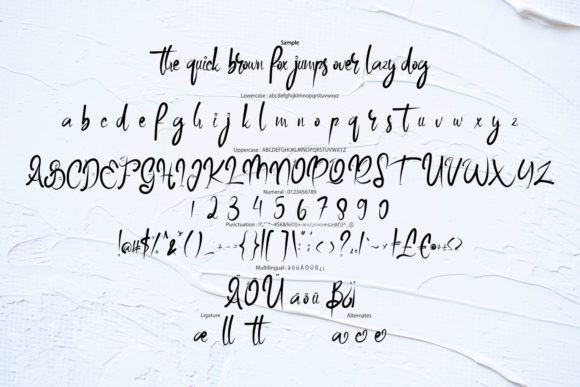 Sample
the quick brown fox jumps over lazy dog
Lowercase : abcdefghijklmnopqrstuvwxyz
a b c d e f g h i j k l m n o p q r s t u v w x y z
Uppercase : ABCDEFGHIJKLMNOPQRSTUVWXYZ
A B C D E F G H I J K L M N O P Q R S T U V W X Y Z
Numeral : 0123456789
1 2 3 4 5 6 7 8 9 0
Punctuation :
Multilingual : ä ö ü Ä Ö Ü ß ¿ ¡
Ä Ö Ü ä ö ü ß ¿ ¡
Ligature Alternates
æ ll tt a o e